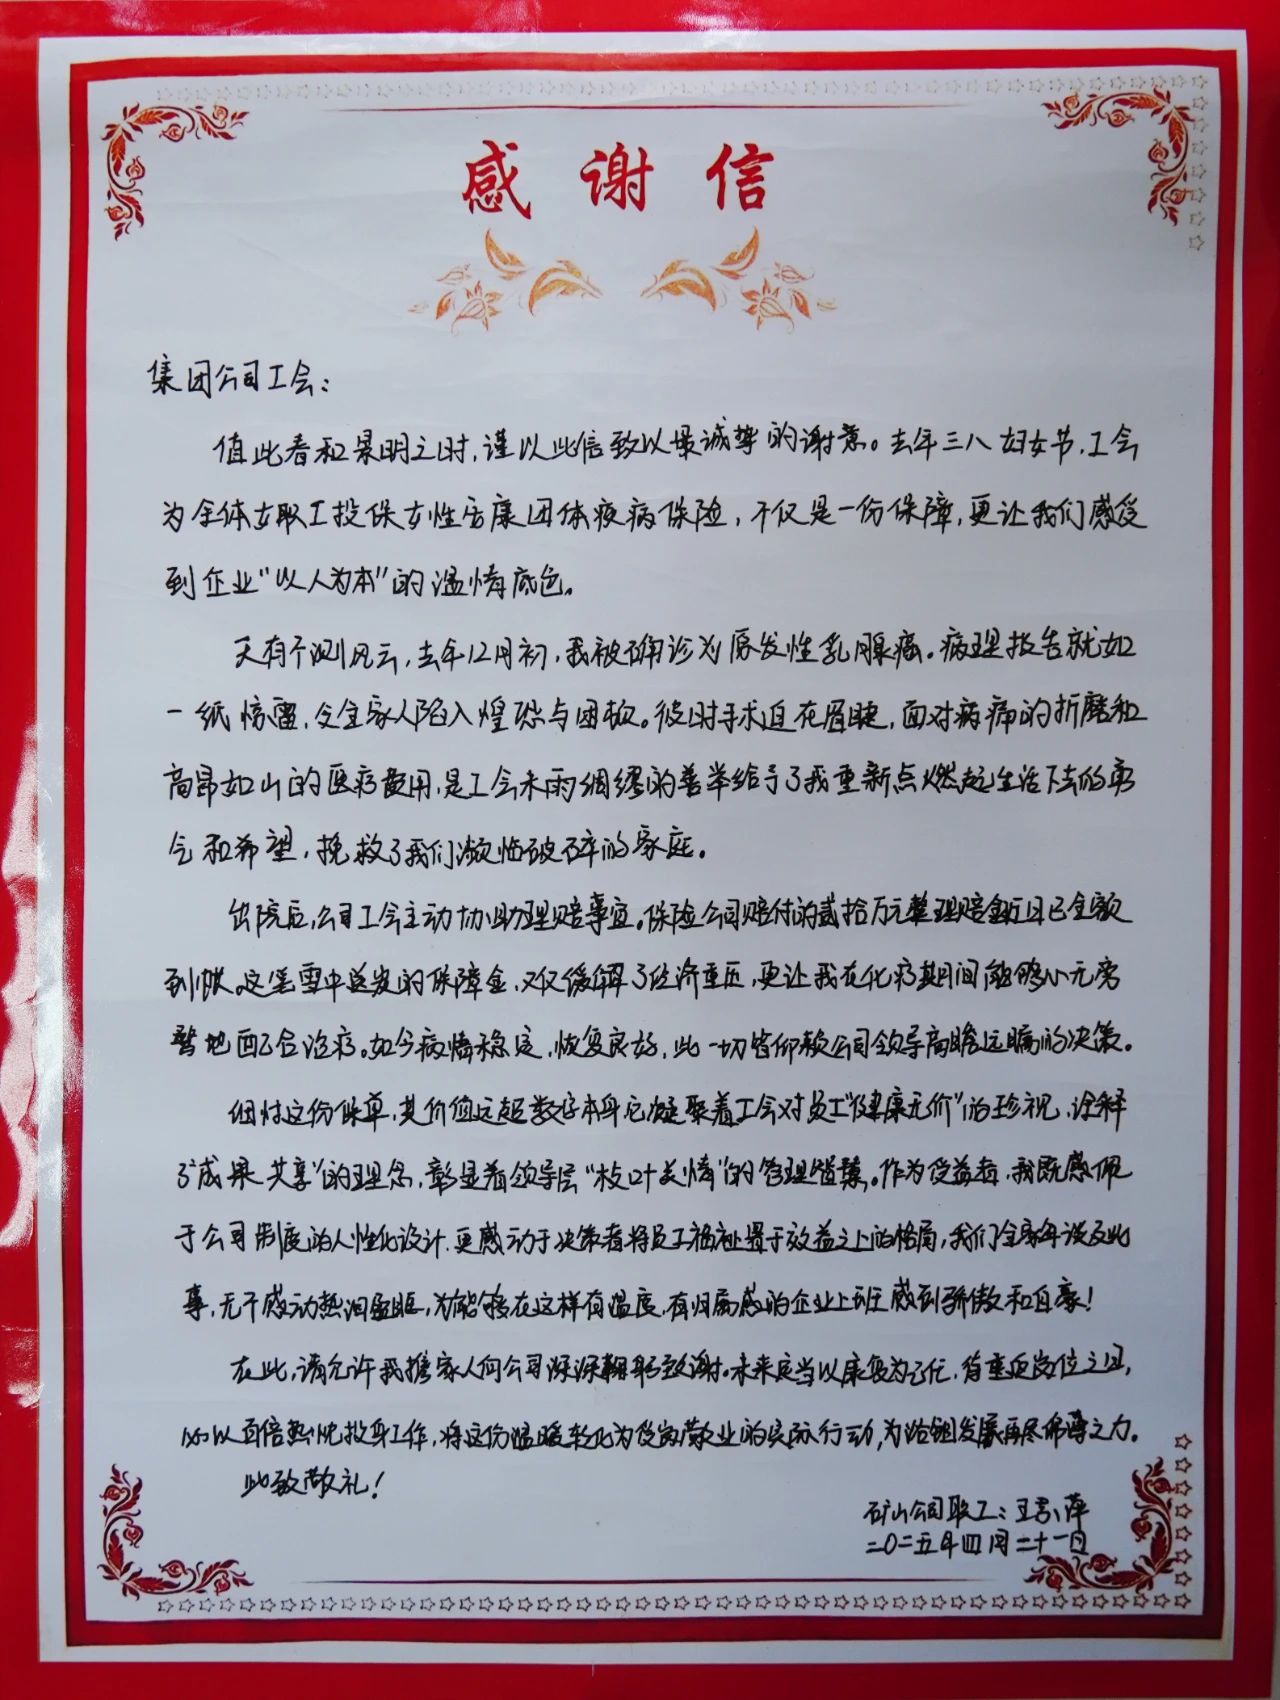 感谢信
集团公司工会：
值此春和景明之时，谨以此信致以最诚挚的谢意。去年三八妇女节，工会
为全体女职工投保女性安康团体疾病保险，不仅是一份保障，更让我们感受
到企业“以人为本”的温情底色。
天有不测风云，去年12月初，我被确诊为原发性乳腺癌。病理报告就如
一纸惊雷，令全家人陷入惶恐与困顿。彼时手术迫在眉睫，面对病痛的折磨和
高昂如山的医疗费用，是工会未雨绸缪的善举给予了我重新点燃起生活下去的勇
气和希望，挽救了我们濒临破碎的家庭。
出院后，公司工会主动协助理赔事宜。保险公司赔付的贰拾万元整理赔金近日已全额
到帐。这笔雪中送炭的保障金，不仅缓解了经济重压，更让我在化疗期间能够心无旁
骛地配合治疗。如今病情稳定，恢复良好，此一切皆仰赖公司领导高瞻远瞩的决策。
细忖这份保单，其价值远超数字本身它凝聚着工会对员工“健康无价”的珍视，诠释
了“成果共享”的理念，彰显着领导层“枝叶关情”的管理智慧。作为受益者，我既感佩
于公司制度的人性化设计，更感动于决策者将员工福祉置于效益之上的格局，我们全家每谈及此
事，无不感动热泪盈眶，为能够在这样有温度、有归属感的企业上班感到骄傲和自豪！
在此，请允许我携家人向公司深深鞠躬致谢。未来定当以康复为己任，待重返岗位之日，
必以百倍热忱投身工作，将这份温暖转化为爱岗敬业的实际行动，为洛钼发展再尽绵薄之力。
此致敬礼！
矿山公司职工：王
二〇二五年四月二十一日